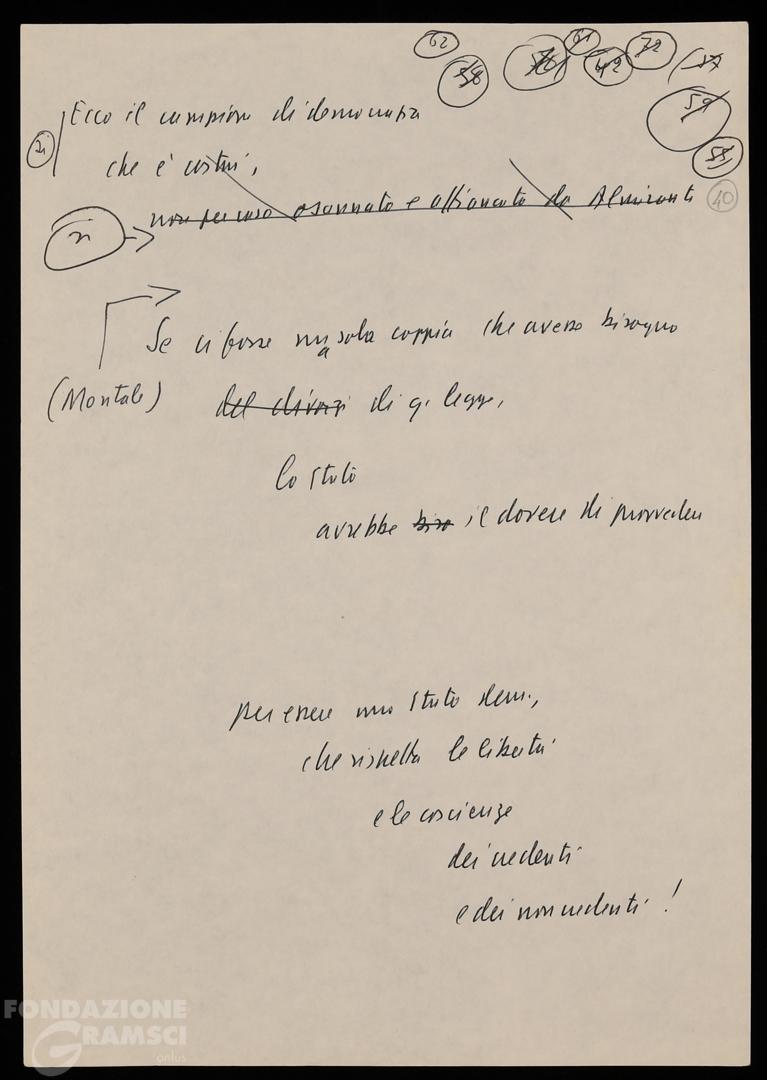 62
58
61
42
72
57
59
55
40
Ecco il campione di democrazia
21
che è costui,
non per caso osannato e affiancato da Almirante
Se ci fosse una sola coppia che avesse bisogno
(Montale)
del divorzi di q. legge,
lo Stato
avrebbe biso il dovere di provvedere
per essere uno Stato dem.,
che rispetta le libertà
e le coscienze
dei credenti
e dei non credenti!
FONDAZIONE
GRAMSCI
onlus